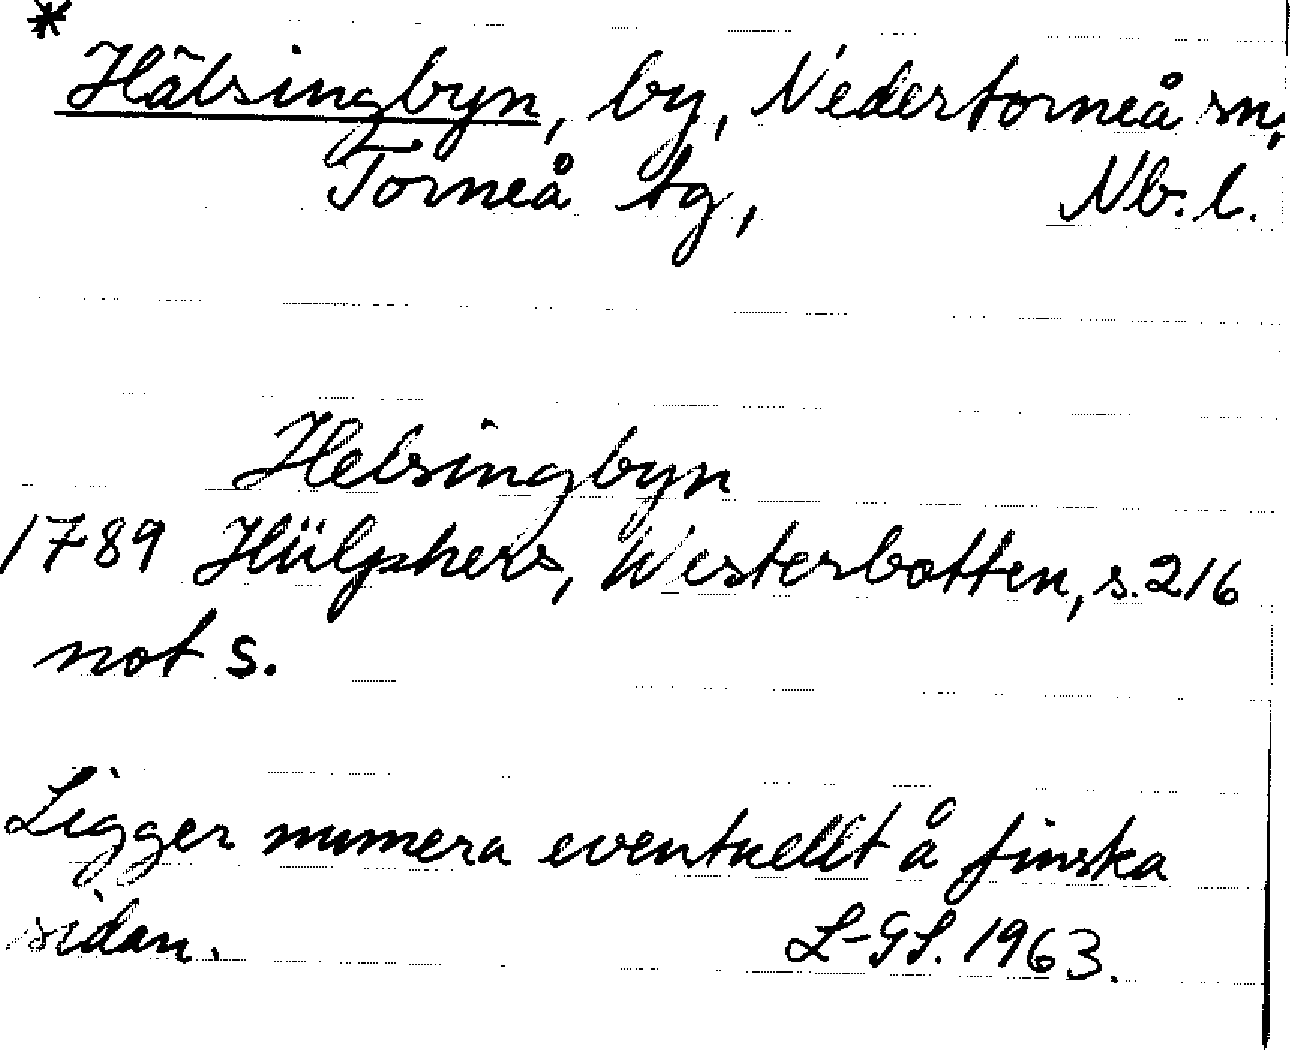 *
Hälsingbyn, by, Nedertorneå sn,
Torneå tg, Nb. l.
Helsingbyn
1789 Hülphers, Westerbotten, s. 216
not s.
Ligger numera eventuellt å finska
sidan. L-GS. 1963.